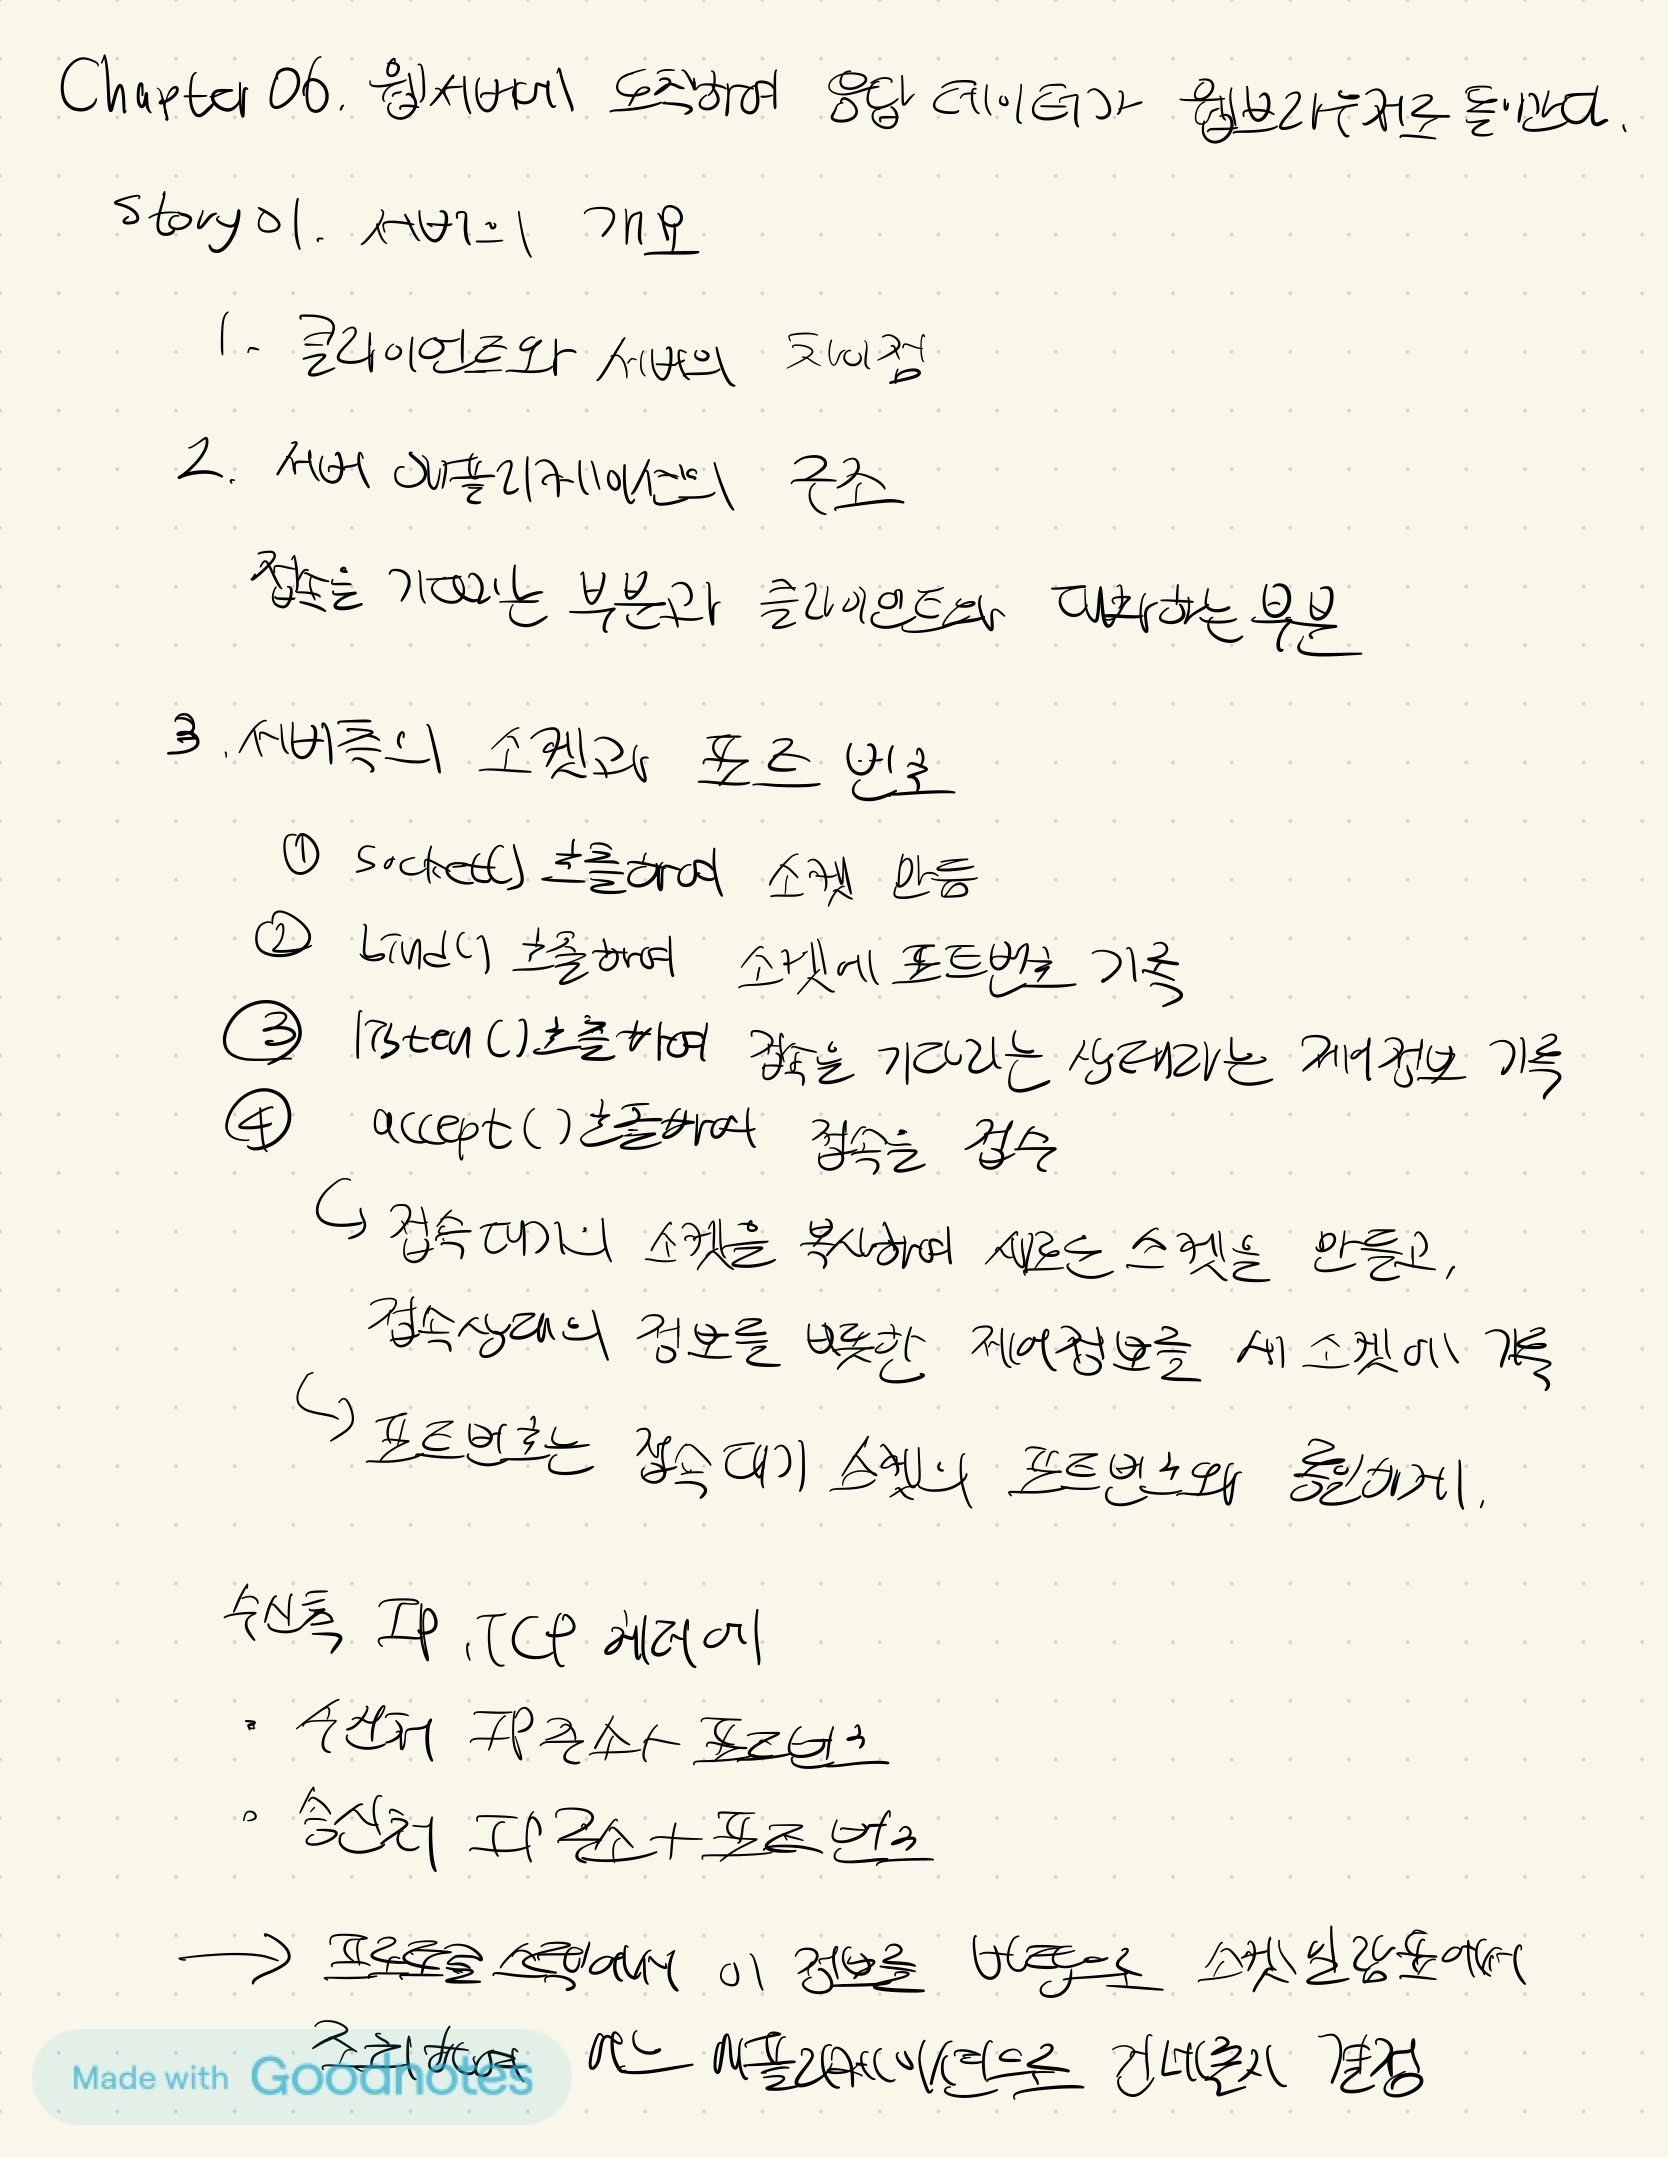 Chapter 06. 웹서버에 도착하여 응답 데이터가 웹브라우저로 돌아간다.
Story 01. 서버의 개요
1. 클라이언트와 서버의 차이점
2. 서버 애플리케이션의 구조
접속을 기다리는 부분과 클라이언트와 대화하는 부분
3. 서버측의 소켓과 포트 번호
① socket() 호출하여 소켓 만듬
② bind() 호출하여 소켓에 포트번호 기록
③ listen() 호출하여 접속을 기다리는 상태라는 제어정보 기록
④ accept() 호출하여 접속을 접수
↳ 접속 대기의 소켓을 복사하여 새로운 소켓을 만들고,
접속상대의 정보를 비롯한 제어정보를 새 소켓에 기록
↳ 포트번호는 접속 대기 소켓의 포트번호와 동일하게.
수신측 IP, TCP 헤더에
• 수신처 IP 주소 + 포트번호
• 송신처 IP 주소 + 포트번호
→ 프로토콜 스택에서 이 정보를 바탕으로 소켓 일람표에서
조회하여 어느 애플리케이션으로 건네줄지 결정
Made with Goodnotes